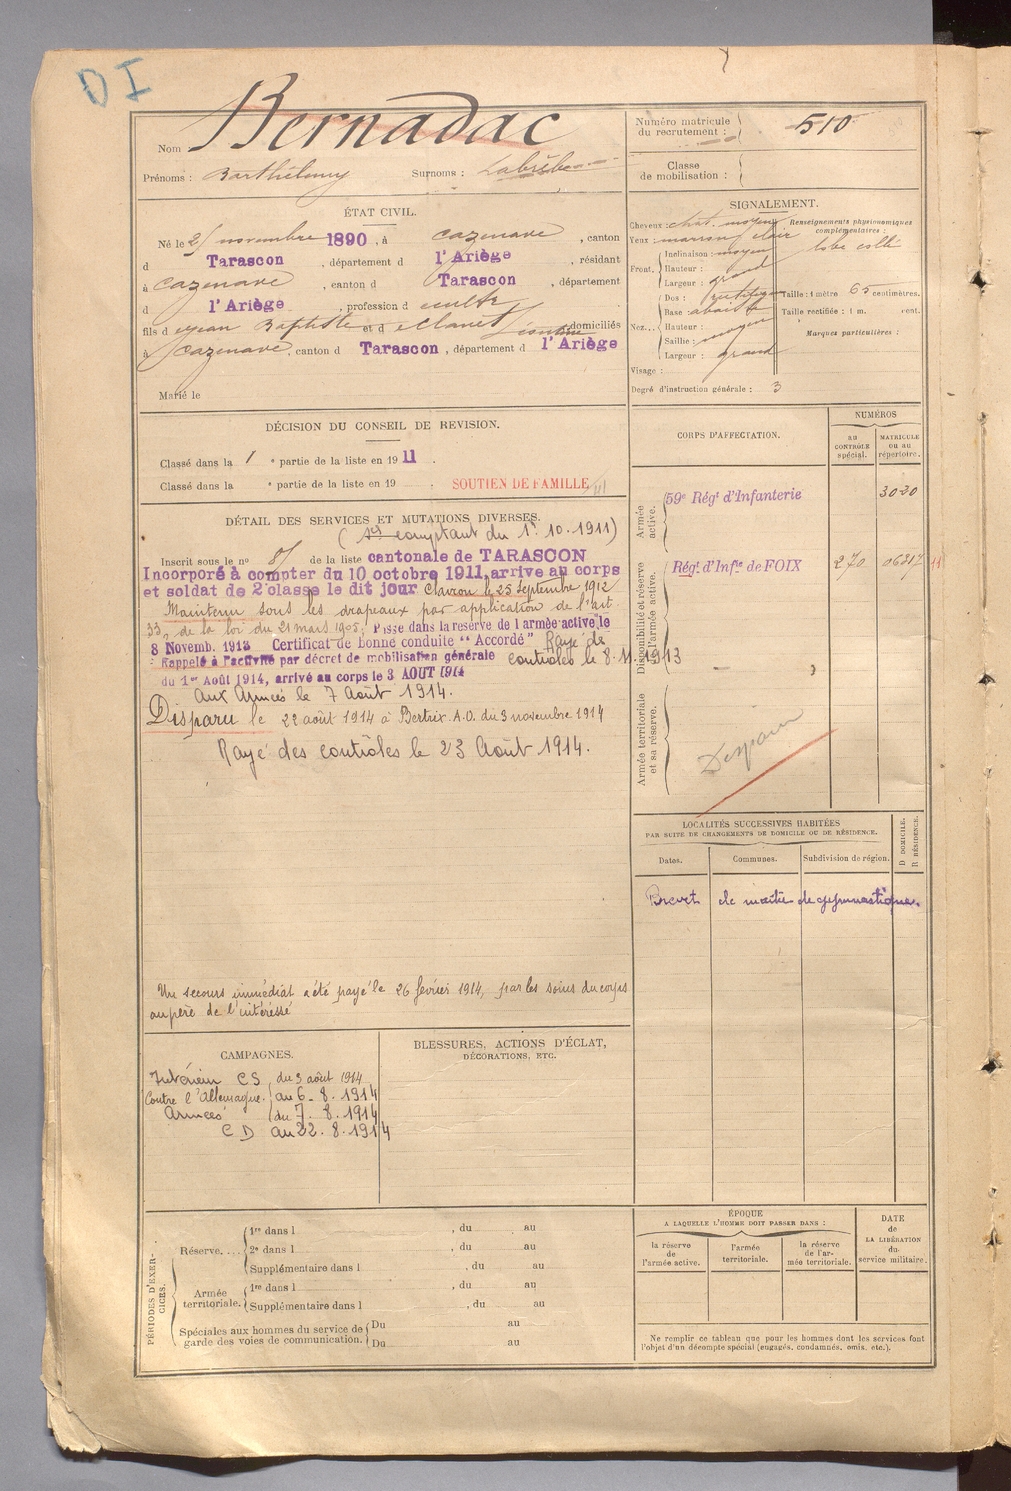 D I
Nom Bernadac
Prénoms : Barthélemy Surnoms :
Numéro matricule du recrutement : 510
Classe de mobilisation :
ÉTAT CIVIL.
Né le novembre 1890, à Cazenave, canton
d Tarascon, département d l'Ariège, résidant
à Cazenave, canton d Tarascon, département
d l'Ariège, profession d cultr
fils d Jean Baptiste et d domiciliés
à Cazenave, canton d Tarascon, département d l'Ariège
Marié le
SIGNALEMENT.
Cheveux : chat. moyen
Yeux : marron clair
Front, Inclinaison : moyen
Hauteur : grand
Largeur :
Nez... Dos : rectiligne
Base : abaissée
Hauteur : moyen
Saillie :
Largeur : grand
Visage :
Degré d'instruction générale : 3
Renseignements physionomiques complémentaires :
lobe collé
Taille : 1 mètre 65 centimètres.
Taille rectifiée : 1 m. cent.
Marques particulières :
DÉCISION DU CONSEIL DE REVISION.
Classé dans la 1 e partie de la liste en 1911.
Classé dans la e partie de la liste en 19 . SOUTIEN DE FAMILLE
DÉTAIL DES SERVICES ET MUTATIONS DIVERSES.
comptant du 1er 10.1911)
Inscrit sous le n° 8 de la liste cantonale de TARASCON
Incorporé à compter du 10 octobre 1911, arrive au corps
et soldat de 2e classe le dit jour Clairon le 25 Septembre 1912
Maintenu sous les drapeaux par application de l'art.
33, de la loi du 21 mars 1905, Passé dans la réserve de l'armée active le
8 Novemb. 1913 Certificat de bonne conduite "Accordé" Rayé des
Rappelé à l'activité par décret de mobilisation générale contrôles le 8.11.1913
du 1er Août 1914, arrivé au corps le 3 AOUT 1914
Aux Armées le 7 Août 1914.
Disparu le 22 août 1914 à Bertrix A.O. du 3 novembre 1914
Rayé des contrôles le 23 Août 1914.
Un secours immédiat a été payé le 26 février 1914, par les soins du corps
au père de l'intéressé
CORPS D'AFFECTATION.
NUMÉROS
au CONTRÔLE spécial.
MATRICULE ou au répertoire.
Armée active.
59e Régt d'Infanterie 3030
Disponibilité et réserve de l'armée active.
Régt d'Infie de FOIX 270 06317
Armée territoriale et sa réserve.
Disparu
LOCALITÉS SUCCESSIVES HABITÉES
PAR SUITE DE CHANGEMENTS DE DOMICILE OU DE RÉSIDENCE.
Dates. Communes. Subdivision de région. D DOMICILE. R RÉSIDENCE.
Brevet de maître de gymnastique.
CAMPAGNES.
Intérieur CS du 3 août 1914
Contre l'Allemagne. au 6.8.1914
Armées du 7.8.1914
CD au 22.8.1914
BLESSURES, ACTIONS D'ÉCLAT, DÉCORATIONS, ETC.
PÉRIODES D'EXERCICES.
Réserve.... 1re dans l , du au
2e dans l , du au
Supplémentaire dans l , du au
Armée territoriale. 1re dans l , du au
Supplémentaire dans l , du au
Spéciales aux hommes du service de garde des voies de communication. Du au
Du au
ÉPOQUE
A LAQUELLE L'HOMME DOIT PASSER DANS :
la réserve de l'armée active.
l'armée territoriale.
la réserve de l'armée territoriale.
DATE de LA LIBÉRATION du service militaire.
Ne remplir ce tableau que pour les hommes dont les services font
l'objet d'un décompte spécial (engagés, condamnés, omis, etc.).